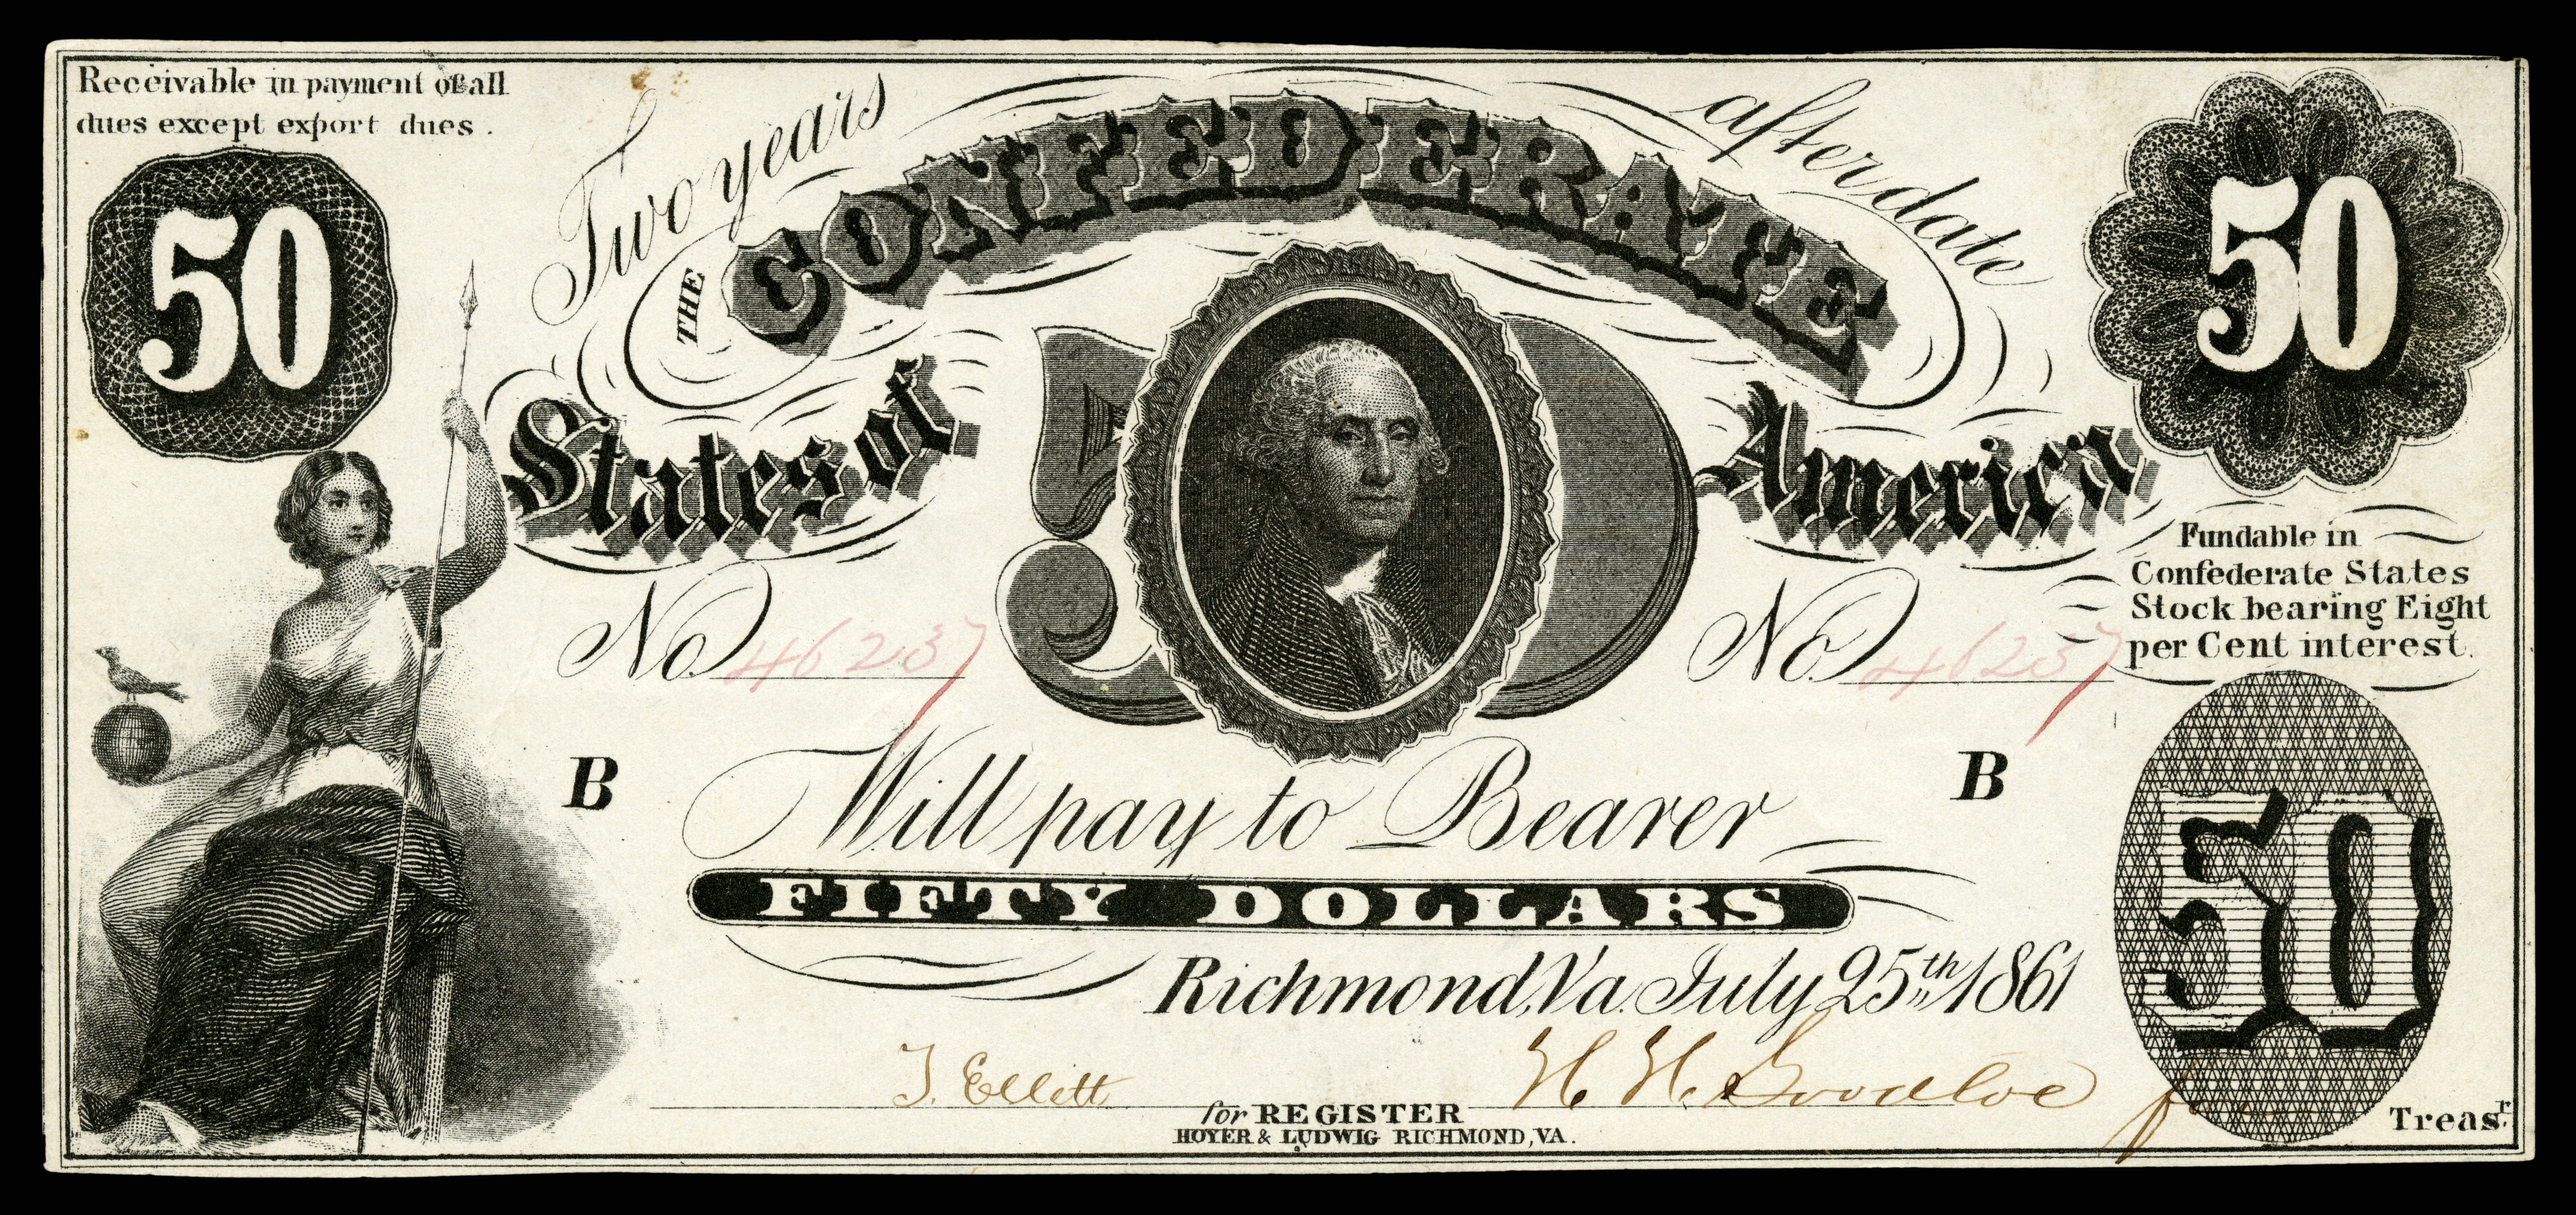 Receivable in payment of all
dues except export dues.
50
Two years after date
50
THE CONFEDERATE
States of America
50
Fundable in
Confederate States
Stock bearing Eight
per Cent interest.
No. 46237
No. 46237
B
B
Will pay to Bearer
FIFTY DOLLARS
50
Richmond, Va. July 25th 1861
T. Ellett
H. H. Goodloe for
for REGISTER
Treasr.
HOYER & LUDWIG RICHMOND, VA.